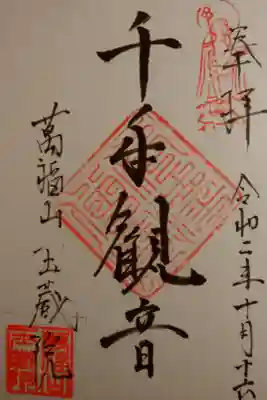 奉拝
令和二年十月十六
千手観音
萬福山 玉蔵院